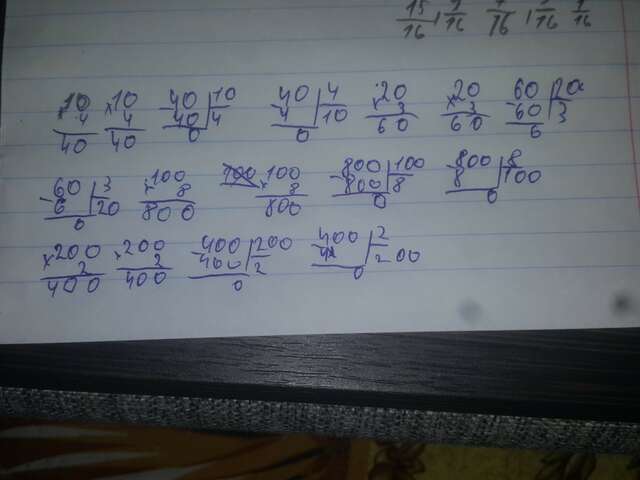 15/16, 9/16 7/16, 1/16 9/16
×10 ×10 -40|10 40|4 ×20 ×20 60|20
4 4 40|4 -4|10 3 3 -60|3
40 40 0 0 60 60 6
60|3 ×100 100 ×100 -800|100 -800|8
-6|20 8 8 800|8 8|100
0 800 800 0 0
×200 ×200 -400|200 -400|2
2 2 400|2 |200
400 400 0 0